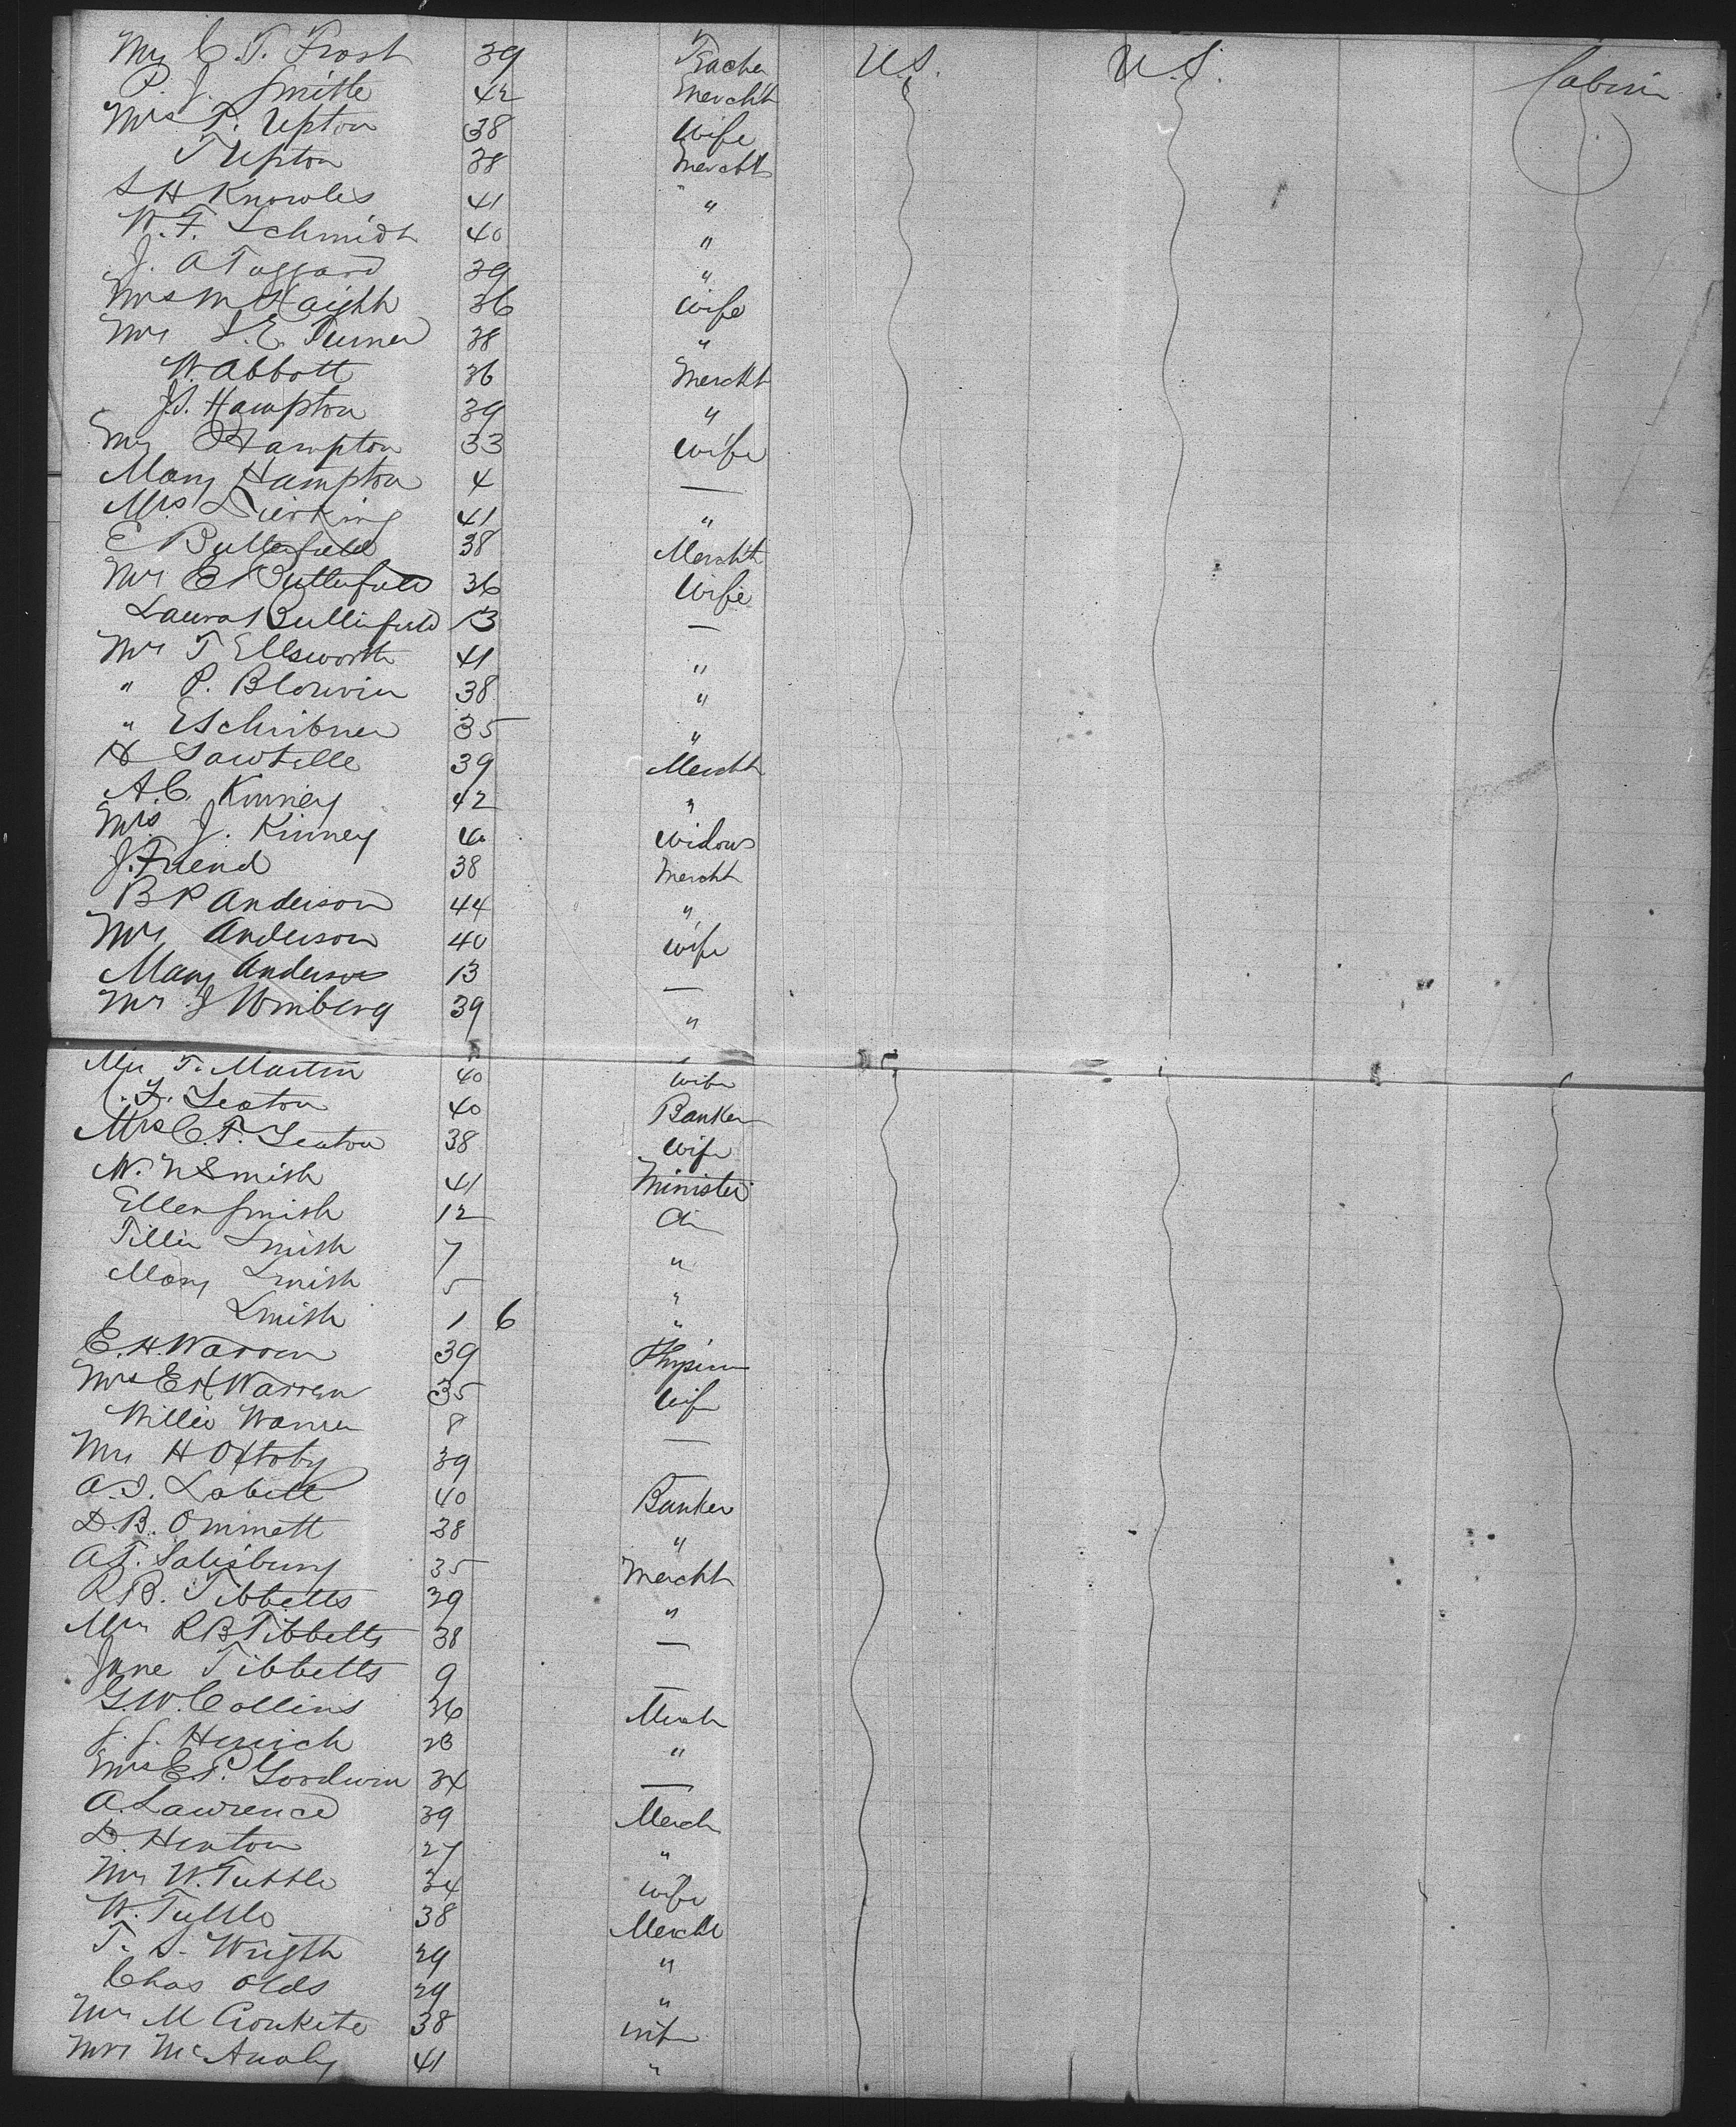 Mrs C. T. Frost 39 Teacher U.S. U.S. Cabin
P. J. Smith 42 Mercht
Mrs T. Upton 38 Wife
T Upton 38 Mercht
S H Knowles 41 "
W. F. Schmidt 40 "
J. A Taggard 39 "
Mrs M Haight 36 Wife
Mrs S. E. Turner 38 "
W. Abbott 36 Mercht
J. S. Hampton 39 "
Mrs Hampton 33 Wife
Mary Hampton 4 —
Mrs Dierking 41 "
E Butterfield 38 Mercht
Mrs E Butterfield 36 Wife
Laura Butterfield 13 —
Mrs T Ellsworth 41 "
" P. 38 "
" E Schribner 35 "
H Sawtelle 39 Mercht
A. C. Kinney 42 "
Mrs J. Kinney 40 Widow
J. Friend 38 Mercht
B P Anderson 44 "
Mrs Anderson 40 Wife
Mary Anderson 13 —
Mrs J Wmberg 39 "
Mrs T. Martin 40 Wife
C. F. Seaton 40 Banker
Mrs C. F. Seaton 38 Wife
N. N Smith 41 Minister
Ellen Smith 12 Ch
Tillie Smith 7 "
Mary Smith 5 "
Smith 1 6 "
E. H. Warren 39 Physician
Mrs E H Warren 35 Wife
Willie Warren 8 —
Mrs H Oxtoby 39 —
A. J. Labitt 40 Banker
D. B. Ommett 38 "
A. T. Salisbury 35 Mercht
R B. Tibbetts 39 "
Mrs R B Tibbetts 38 —
Jane Tibbetts 9 —
G. W. Collins 36 Merch
J. J. 28 "
Mrs E. P. Goodwin 34 —
A. Lawrence 39 Merch
D. Henton 27 "
Mrs W. Tuttle 34 Wife
W. Tuttle 38 Mercht
T. S. Wrigth 29 "
Chas Olds 29 "
Mrs M Cronkite 38 Wife
Mrs McAnaly 41 "